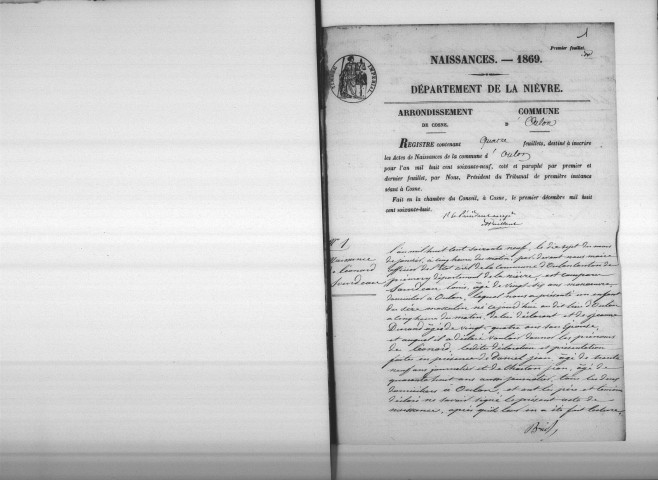 1
Premier feuillet.
NAISSANCES. — 1869.
DÉPARTEMENT DE LA NIÈVRE.
ARRONDISSEMENT
DE COSNE.
COMMUNE
D'Oulon
REGISTRE contenant quatre feuillets, destiné à inscrire
les Actes de Naissances de la commune d'Oulon
pour l'an mil huit cent soixante-neuf, coté et paraphé par premier et
dernier feuillet, par Nous, Président du Tribunal de première instance
séant à Cosne.
Fait en la chambre du Conseil, à Cosne, le premier décembre mil huit
cent soixante-huit.
N° 1
Naissance
Léonard
L'an mil huit cent soixante neuf, le dix sept du mois
de janvier, à cinq heures du matin, par devant nous maire
officier de l'état civil de la commune d'Oulon canton de
Prémery département de la nièvre, est comparu
louis, âgé de vingt six ans manœuvre,
domicilié à Oulon, lequel nous a présenté un enfant
du sexe masculin né aujourd'hui au dit lieu d'Oulon
à cinq heures du matin, de lui déclarant et de jeanne
Durand âgée de vingt quatre ans son épouse,
et auquel il a déclaré vouloir donner les prénoms
de Léonard, ladite déclaration et présentation
faite en présence de jean, âgé de trente
neuf ans journalier et de jean, âgé de
quarante huit ans aussi journalier, tous les deux
domiciliés à Oulon, et ont les père et témoins
déclaré ne savoir signé le présent acte de
naissance, après qu'il leur en a été fait lecture,